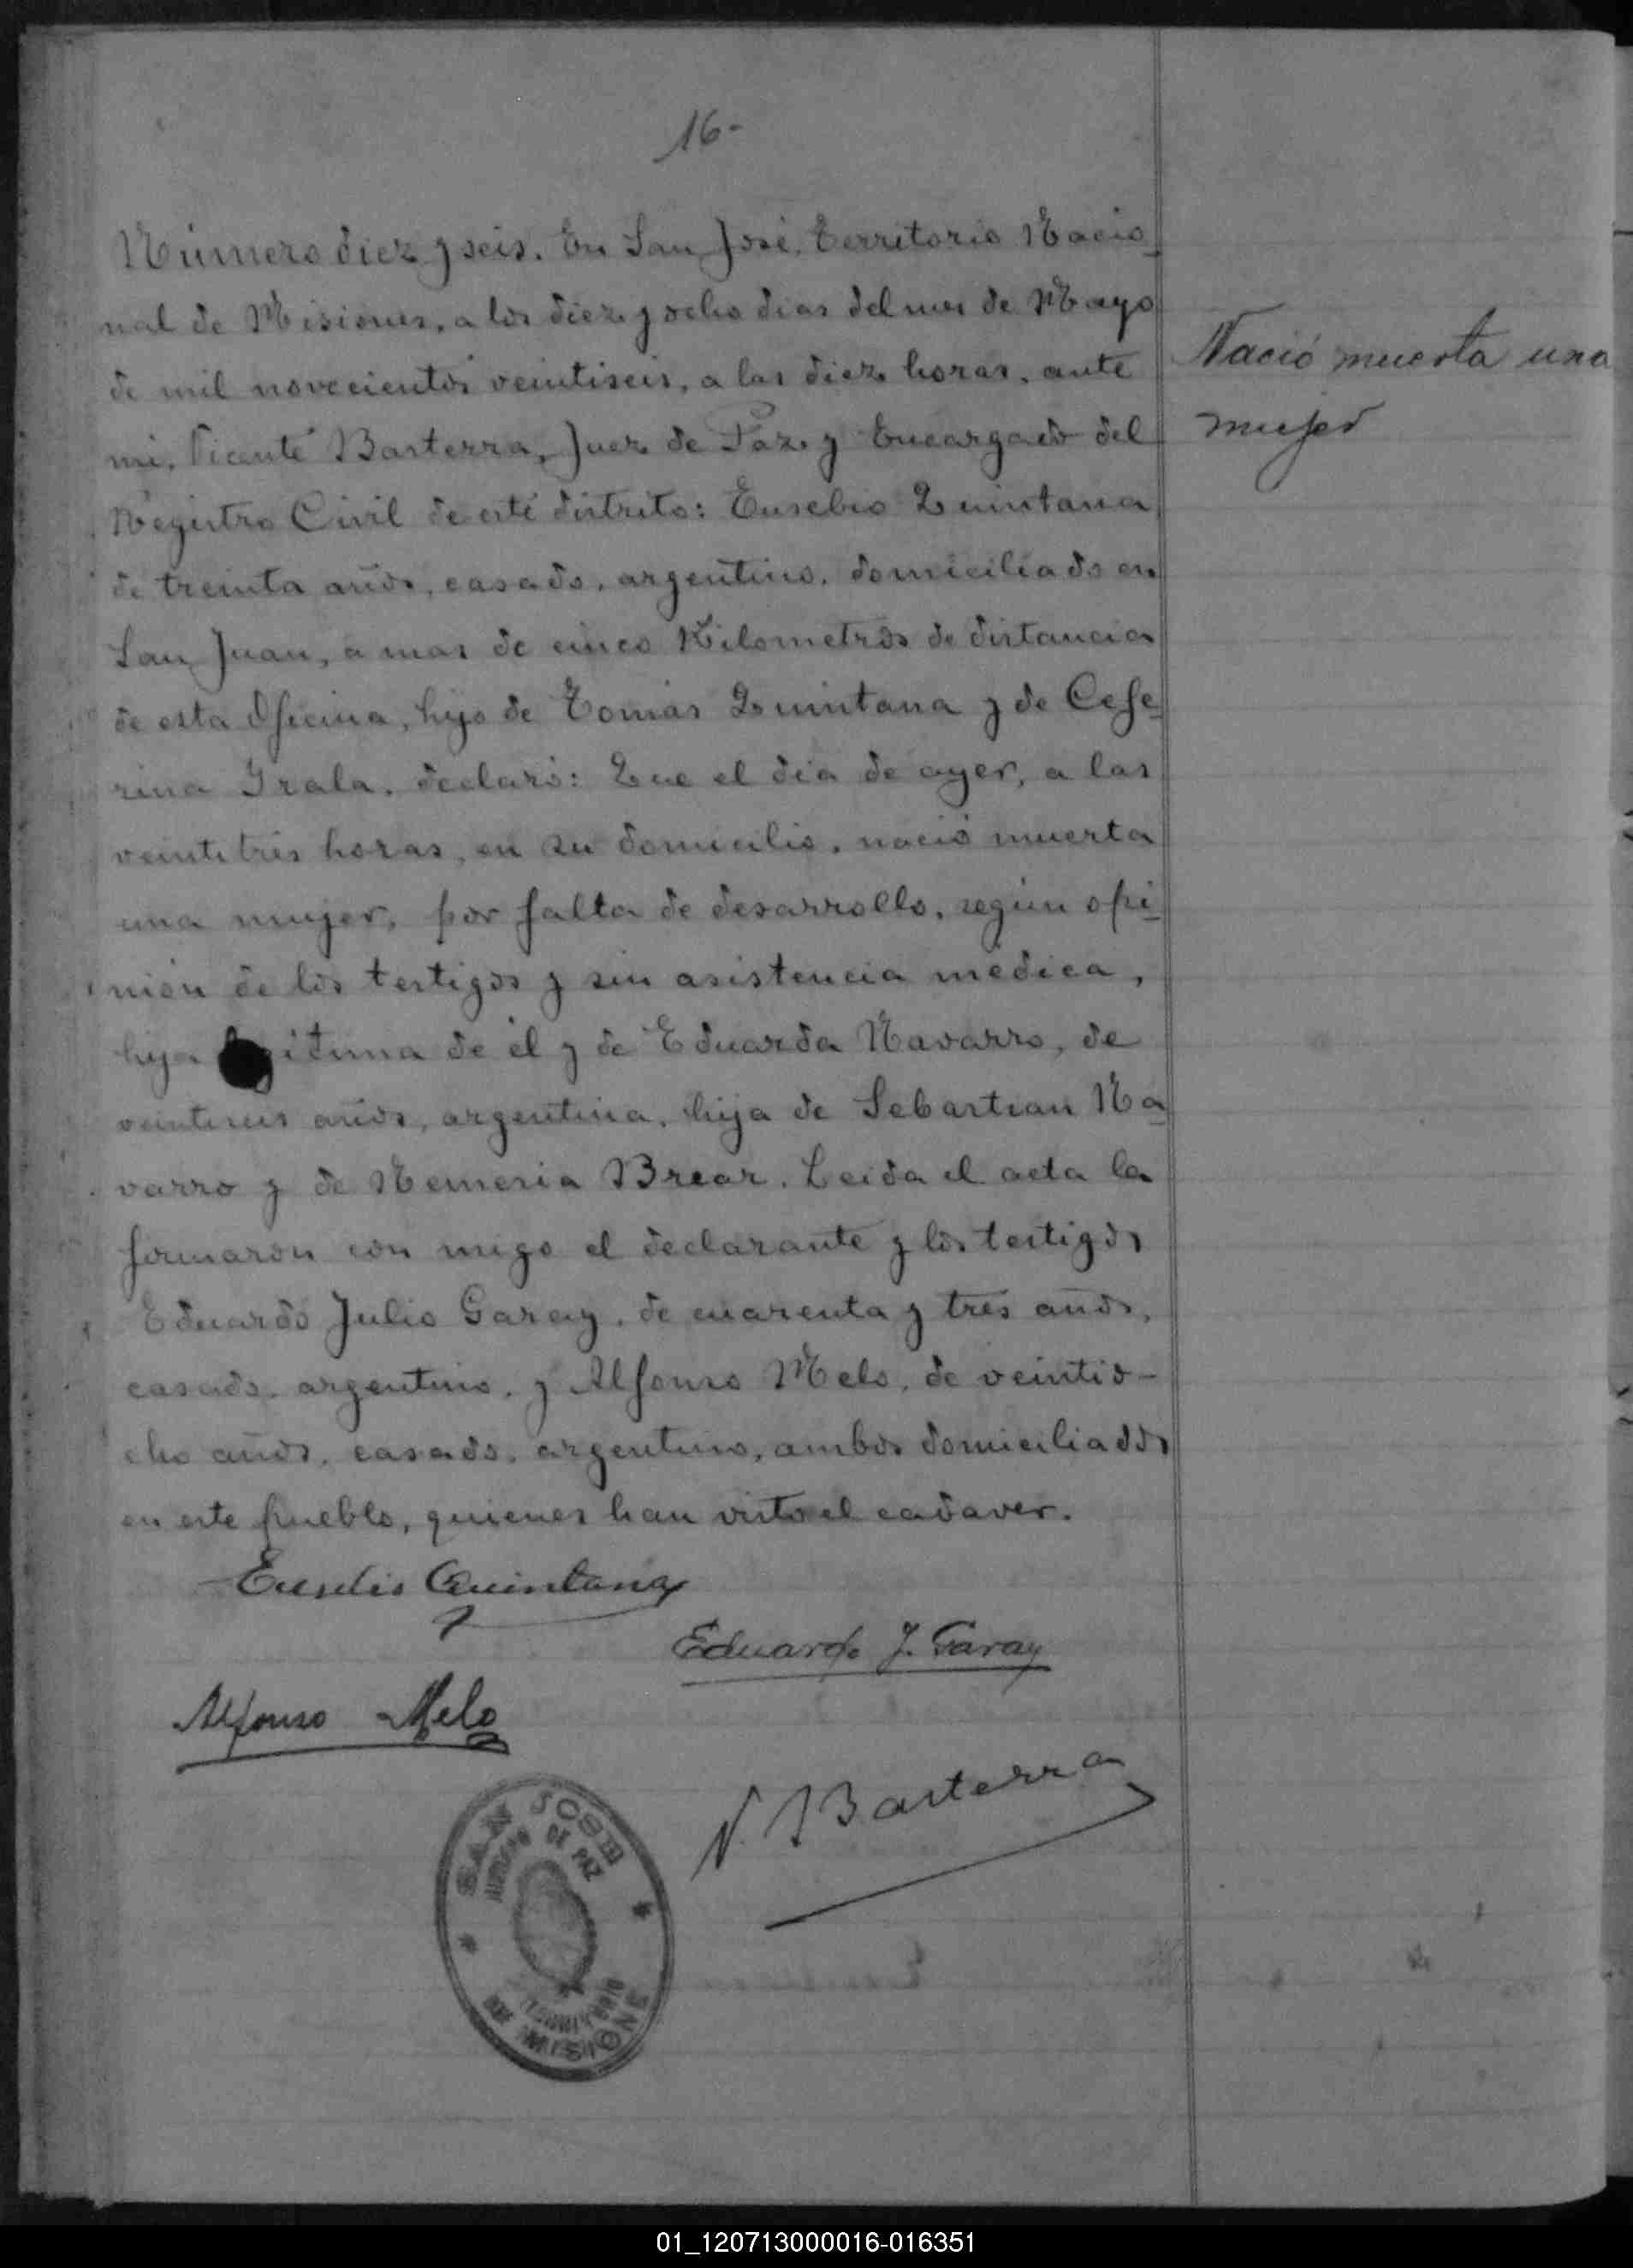 16-
Número diez y seis. En San José, Territorio Nacio-
nal de Misiones, a los diez y ocho dias del mes de Mayo
de mil novecientos veintiseis, a las diez horas, ante
Nació muerta una
mi, Vicente Basterra, Juez de Paz y Encargado del
mujer
Registro Civil de este distrito: Eusebio Quintana
de treinta años, casado, argentino, domiciliado en
San Juan, a mas de cinco Kilometros de distancia
de esta Oficina, hijo de Tomás Quintana y de Cefe-
rina Irala, declaró: Que el dia de ayer, a las
veintitrés horas, en su domicilio, nació muerta
una mujer, por falta de desarrollo, según opi-
nión de los testigos y sin asistencia medica,
hija legitima de él y de Eduarda Navarro, de
veintiseis años, argentina, hija de Sebastian Na-
varro y de Nemesia Brear. Leida el acta la
firmaron con migo el declarante y los testigos
Eduardo Julio Garay, de cuarenta y tres años,
casado, argentino, y Alfonso Melo, de veintio-
cho años, casado, argentino, ambos domiciliados
en este pueblo, quienes han visto el cadaver.
Eusebio Quintana
Eduardo J. Garay
Alfonso Melo
V. Basterra
SAN JOSE
JUZGADO DE PAZ
TERRITORIO
DE MISIONES
01_120713000016-016351